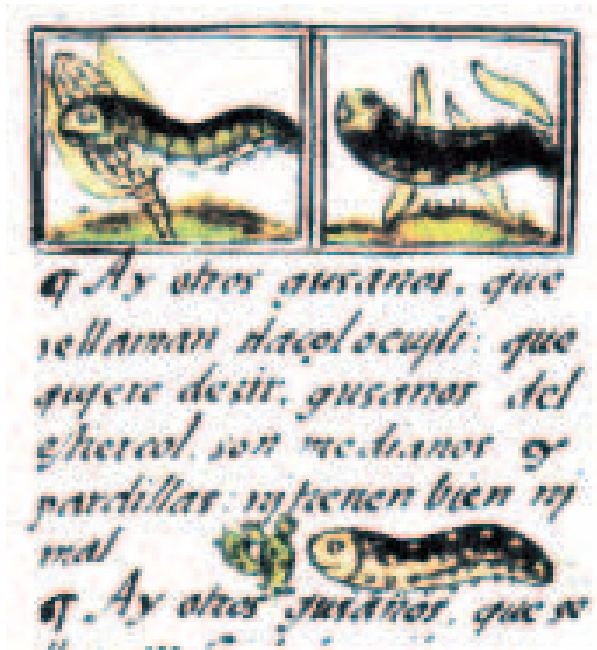 ¶ Ay otros gusanos, que
se llaman tlaçolocujli: que
qujere desir, gusanos del
estiercol, son medianos y
pardillos: nj tienen bien nj
mal
¶ Ay otros gusanos, que se